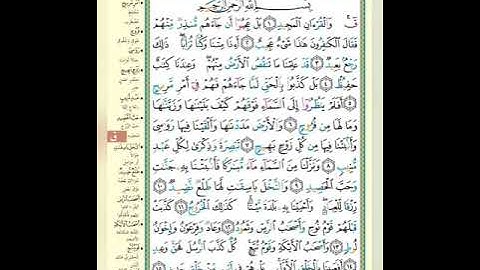 بِسْمِ ٱللَّهِ ٱلرَّحْمَٰنِ ٱلرَّحِيمِ
قٓ وَٱلْقُرْءَانِ ٱلْمَجِيدِ ١ بَلْ عَجِبُوٓا۟ أَن جَآءَهُم مُّنذِرٌ مِّنْهُمْ
فَقَالَ ٱلْكَٰفِرُونَ هَٰذَا شَىْءٌ عَجِيبٌ ٢ أَءِذَا مِتْنَا وَكُنَّا تُرَابًا ذَٰلِكَ
رَجْعٌۢ بَعِيدٌ ٣ قَدْ عَلِمْنَا مَا تَنقُصُ ٱلْأَرْضُ مِنْهُمْ وَعِندَنَا كِتَٰبٌ
حَفِيظٌۢ ٤ بَلْ كَذَّبُوا۟ بِٱلْحَقِّ لَمَّا جَآءَهُمْ فَهُمْ فِىٓ أَمْرٍ مَّرِيجٍ ٥
أَفَلَمْ يَنظُرُوٓا۟ إِلَى ٱلسَّمَآءِ فَوْقَهُمْ كَيْفَ بَنَيْنَٰهَا وَزَيَّنَّٰهَا
وَمَا لَهَا مِن فُرُوجٍ ٦ وَٱلْأَرْضَ مَدَدْنَٰهَا وَأَلْقَيْنَا فِيهَا رَوَٰسِىَ
وَأَنۢبَتْنَا فِيهَا مِن كُلِّ زَوْجٍۭ بَهِيجٍ ٧ تَبْصِرَةً وَذِكْرَىٰ لِكُلِّ عَبْدٍ
مُّنِيبٍ ٨ وَنَزَّلْنَا مِنَ ٱلسَّمَآءِ مَآءً مُّبَٰرَكًا فَأَنۢبَتْنَا بِهِۦ جَنَّٰتٍ
وَحَبَّ ٱلْحَصِيدِ ٩ وَٱلنَّخْلَ بَاسِقَٰتٍ لَّهَا طَلْعٌ نَّضِيدٌ ١٠
رِّزْقًا لِّلْعِبَادِ وَأَحْيَيْنَا بِهِۦ بَلْدَةً مَّيْتًا كَذَٰلِكَ ٱلْخُرُوجُ ١١ كَذَّبَتْ
قَبْلَهُمْ قَوْمُ نُوحٍ وَأَصْحَٰبُ ٱلرَّسِّ وَثَمُودُ ١٢ وَعَادٌ وَفِرْعَوْنُ وَإِخْوَٰنُ
لُوطٍ ١٣ وَأَصْحَٰبُ ٱلْأَيْكَةِ وَقَوْمُ تُبَّعٍ كُلٌّ كَذَّبَ ٱلرُّسُلَ فَحَقَّ وَعِيدِ
١٤ أَفَعَيِينَا بِٱلْخَلْقِ ٱلْأَوَّلِ بَلْ هُمْ فِى